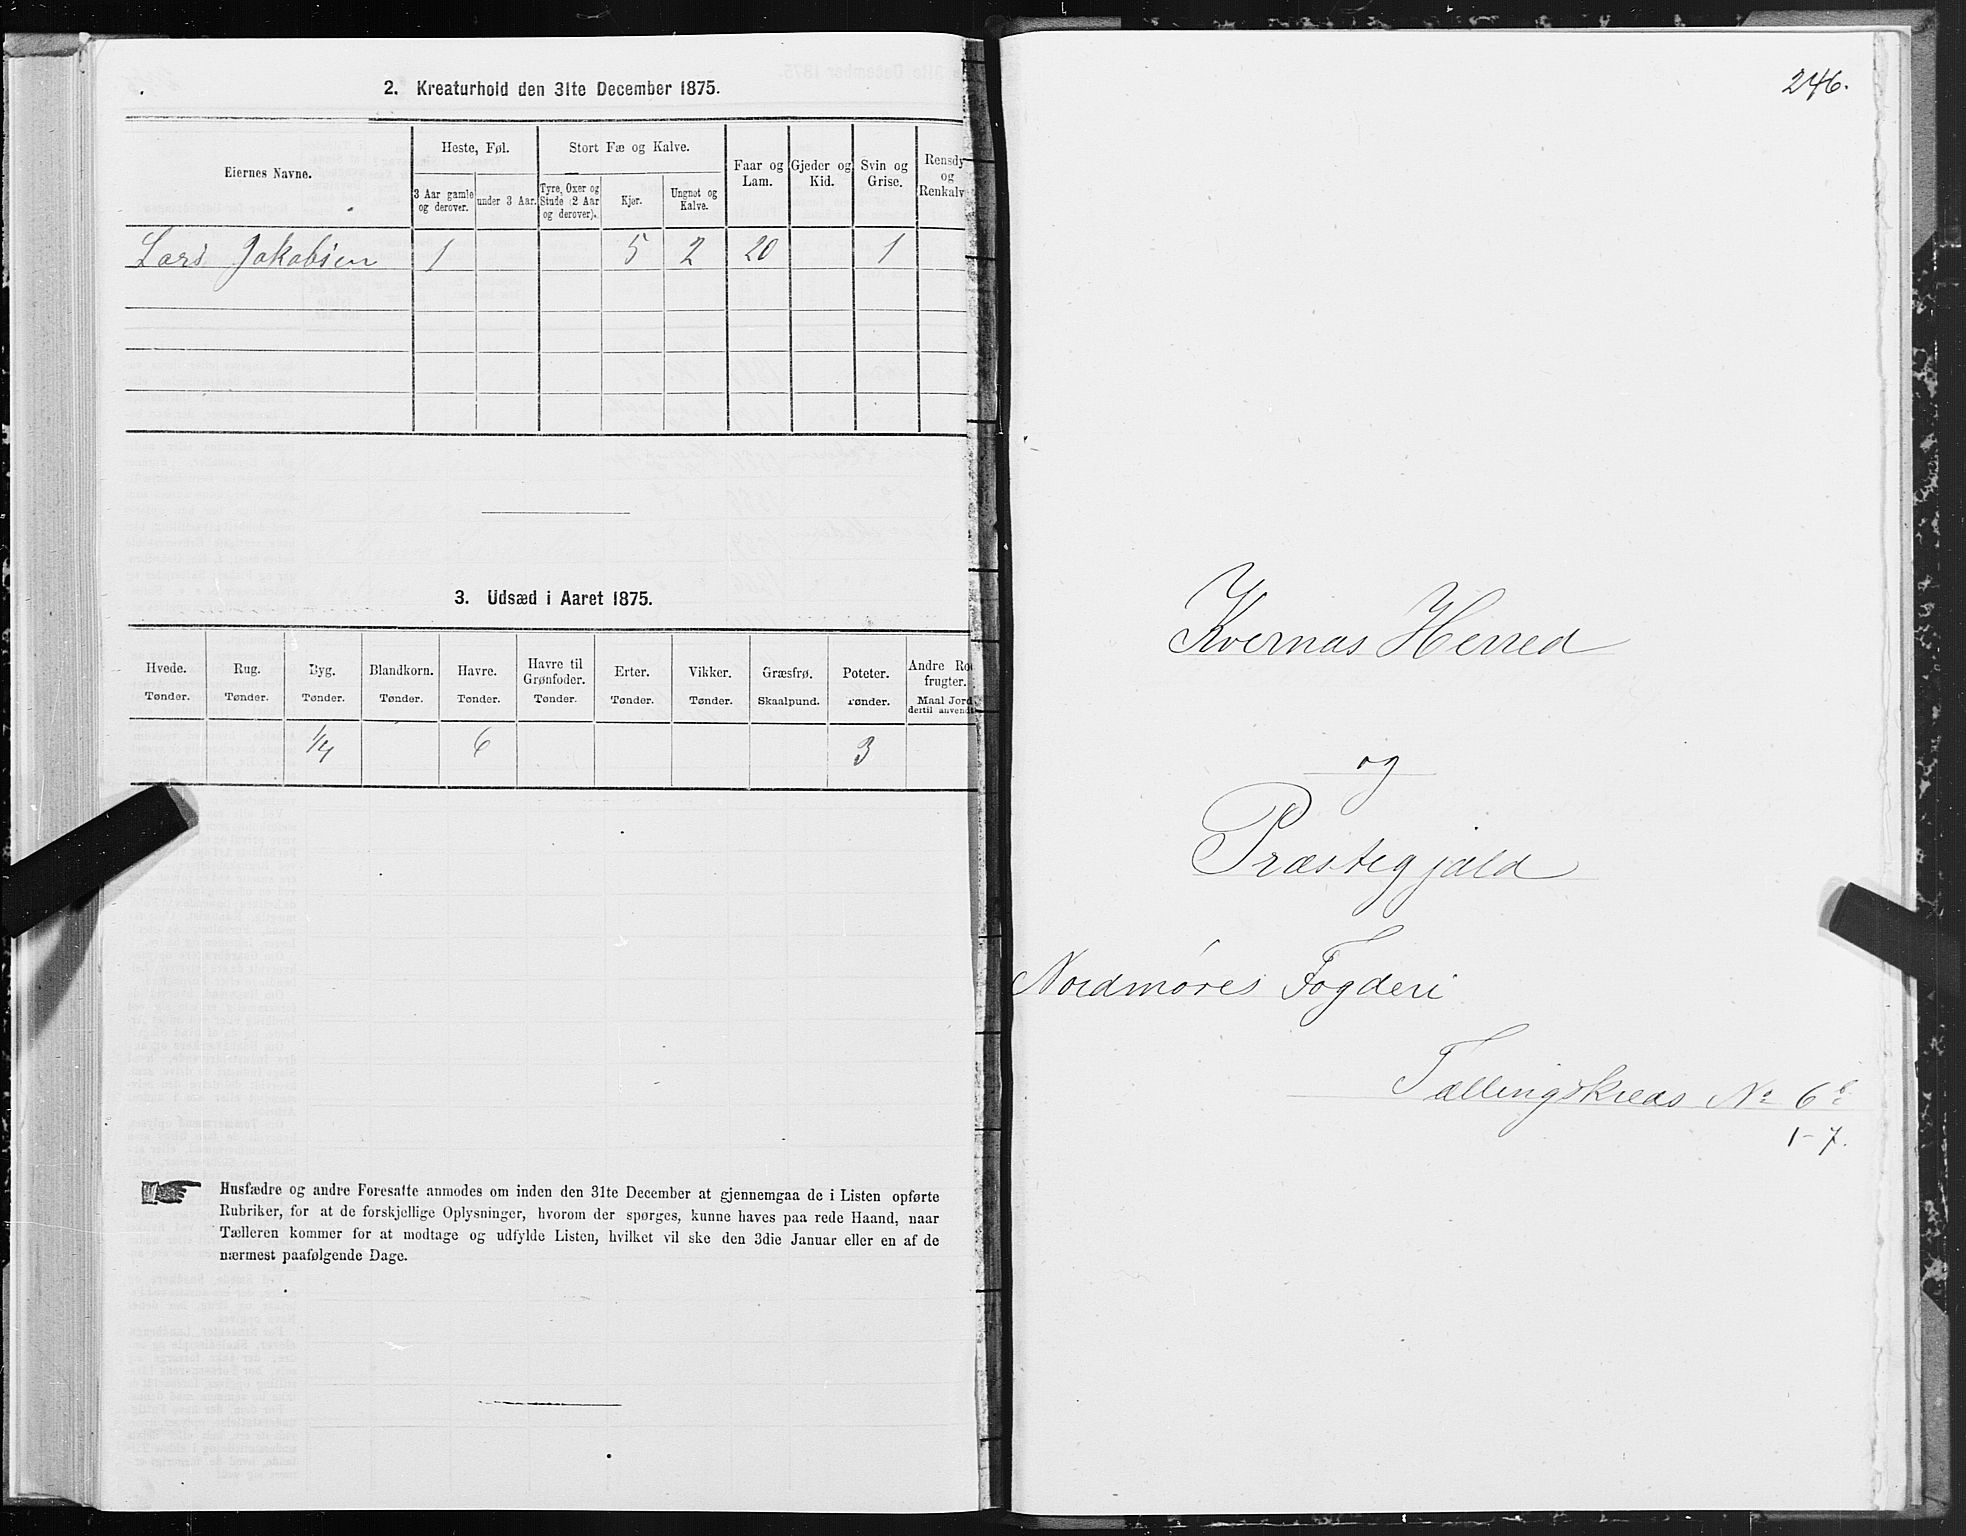 2. Kreaturhold den 31te December 1875.
Eiernes Navne.
Heste, Føl.
Stort Fæ og Kalve.
Faar og Lam.
Gjeder og Kid.
Svin og Grise.
Rensdy
og
Renkalv
3 Aar gamle og derover.
under 3 Aar.
Tyre, Oxer og Stude (2 Aar og derover).
Kjør.
Ungnøt og Kalve.
Lars Jakobsen 1 5 2 20 1
3. Udsæd i Aaret 1875.
Hvede. Rug. Byg. Blandkorn. Havre. Havre til Grønfoder. Erter. Vikker. Græsfrø. Poteter. Andre Ro frugter.
Tønder. Tønder. Tønder. Tønder. Tønder. Tønder. Tønder. Tønder. Skaalpund. Tønder. Maal Jord dertil anvendt
1/4 6 3
Husfædre og andre Foresatte anmodes om inden den 31te December at gjennemgaa de i Listen opførte
Rubriker, for at de forskjellige Oplysninger, hvorom der spørges, kunne haves paa rede Haand, naar
Tælleren kommer for at modtage og udfylde Listen, hvilket vil ske den 3die Januar eller en af de
nærmest paafølgende Dage.
246.
Kvernas Herred
og
Præstegjæld
Nordmøres Fogderi
Tællingskreds No 6b
1-7.